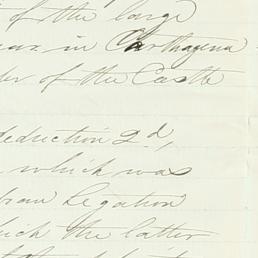 of the large
in Carthagena
of the Castle
deduction 2d,
which was
from Legation
which the latter